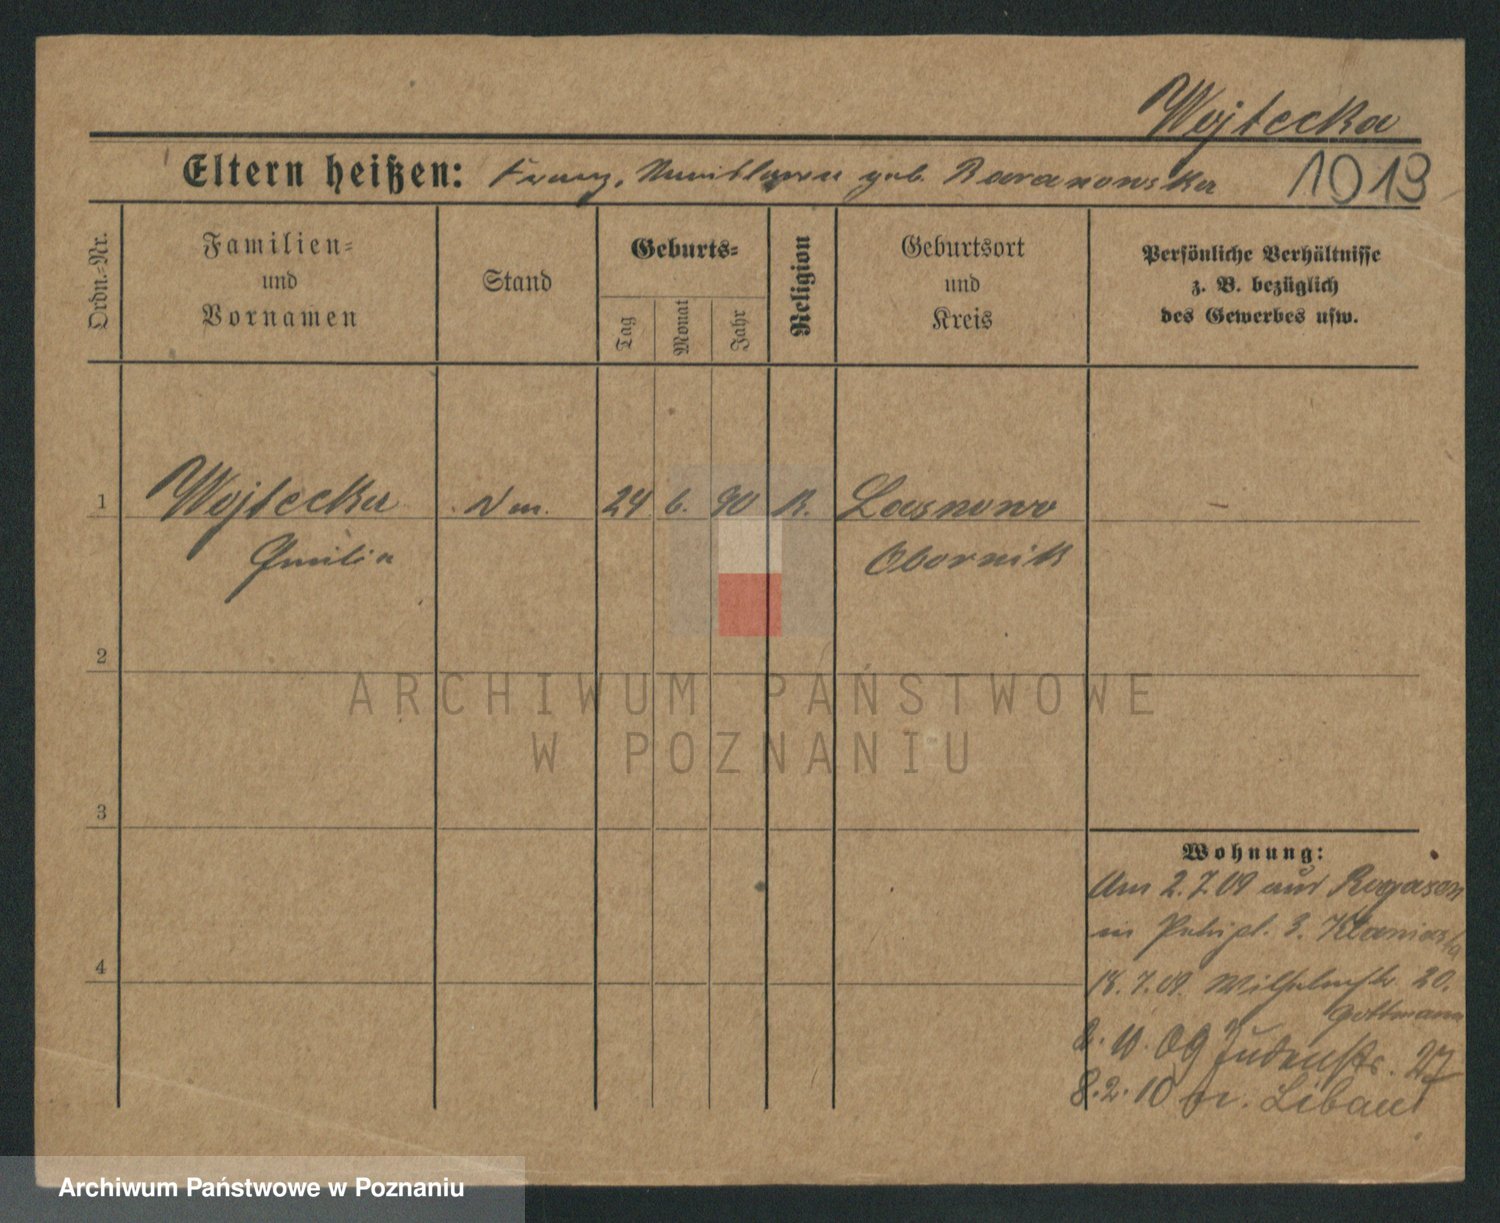 Wojtecka
Eltern heißen: Franz, geb. Baranowska 1013
Ordn.=Nr.
Familien=
und
Vornamen
Stand
Geburts=
Tag
Monat
Jahr
Religion
Geburtsort
und
Kreis
Persönliche Verhältnisse
z. B. bezüglich
des Gewerbes usw.
1 Wojtecka 24 6. 90 K. Lasnowo
Emilia Obornik
2
ARCHIWUM PAŃSTWOWE
W POZNANIU
3
Wohnung:
Am 2.7.09 aus Rogasen
in 3.
18.7.09. Wilhelmstr 20.
Guttmann
09 Judenstr. 27
8.2.10 Libau
4
Archiwum Państwowe w Poznaniu